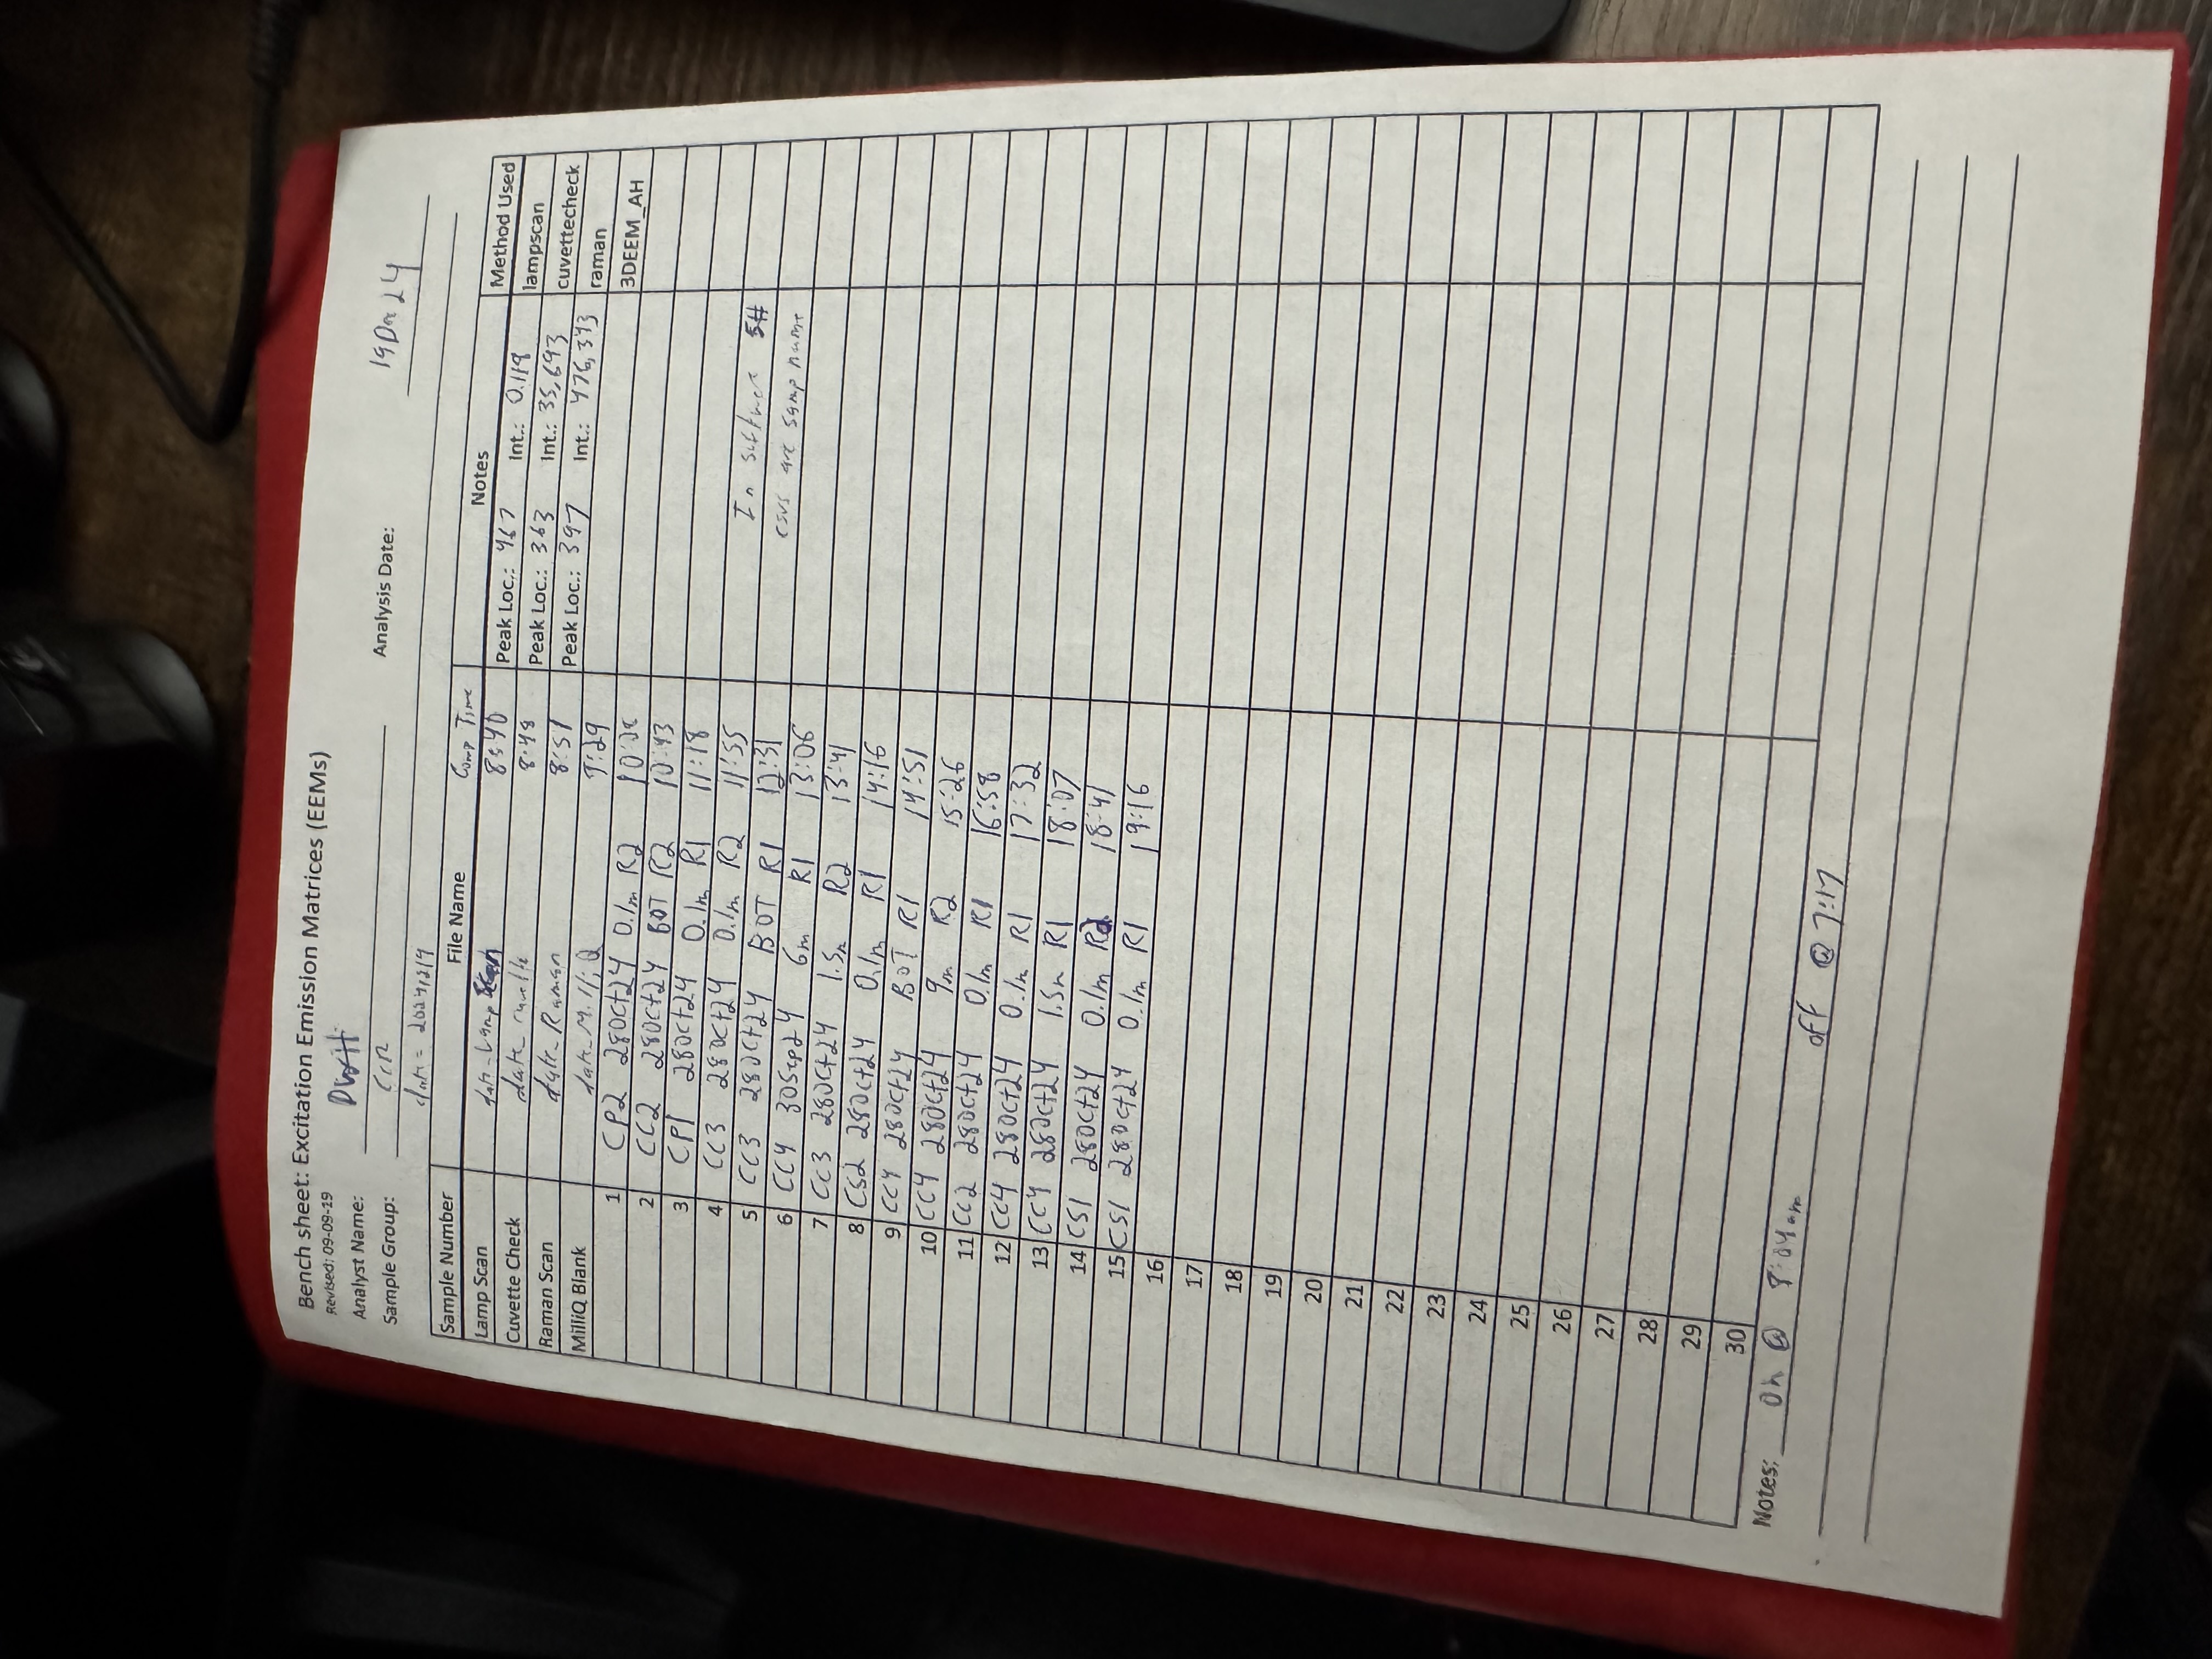 Bench sheet: Excitation Emission Matrices (EEMs)
Revised: 09-09-19
Analyst Name: DWH
Sample Group: CCR Analysis Date: 19Dec24
date = 20241219
Sample Number File Name Comp Time Notes Method Used
Lamp Scan date_Lamp 8:40 Peak Loc.: 467 Int.: 0.119 lampscan
Cuvette Check date_cuvette 8:48 Peak Loc.: 363 Int.: 35,693 cuvettecheck
Raman Scan date_Raman 8:51 Peak Loc.: 397 Int.: 476,373 raman
MilliQ Blank date_MilliQ 9:29 3DEEM_AH
1 CP2 28Oct24 0.1m R2 10:08
2 CC2 28Oct24 BOT R2 10:43
3 CP1 28Oct24 0.1m R1 11:18
4 CC3 28Oct24 0.1m R2 11:55
5 CC3 28Oct24 BOT R1 12:31 In software S#
6 CC4 30Sep24 6m R1 13:06 csvs are samp name
7 CC3 28Oct24 1.5m R2 13:41
8 CS2 28Oct24 0.1m R1 14:16
9 CC4 28Oct24 BOT R1 14:51
10 CC4 28Oct24 9m R2 15:26
11 CC2 28Oct24 0.1m R1 16:58
12 CC4 28Oct24 0.1m R1 17:32
13 CC4 28Oct24 1.5m R1 18:07
14 CS1 28Oct24 0.1m R2 18:41
15 CS1 28Oct24 0.1m R1 19:16
16
17
18
19
20
21
22
23
24
25
26
27
28
29
30
Notes: on @ 8:04am off @ 7:17